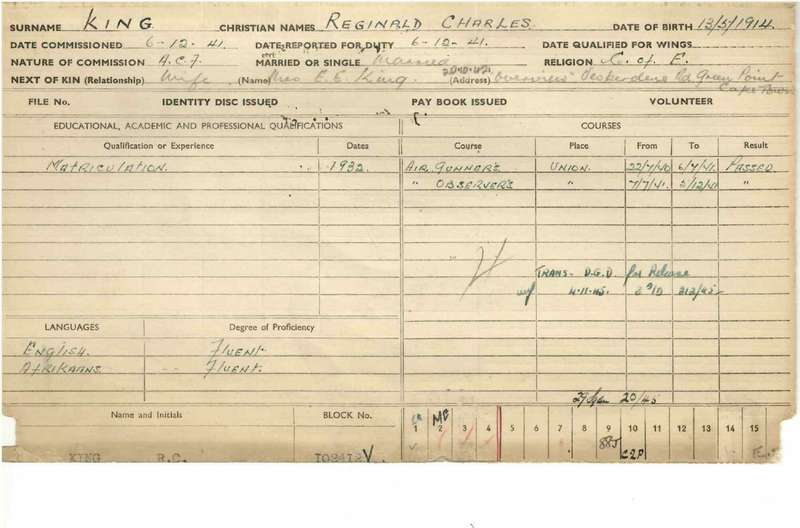 SURNAME KING CHRISTIAN NAMES REGINALD CHARLES. DATE OF BIRTH 13/5/1914.
DATE COMMISSIONED 6-12-41. DATE REPORTED FOR DUTY 6-12-41. DATE QUALIFIED FOR WINGS
NATURE OF COMMISSION A.C.F. MARRIED OR SINGLE Married RELIGION C. of E.
NEXT OF KIN (Relationship) Wife (Name) Mrs E. E. King. (Address) Green Point
Cape Town
FILE No. IDENTITY DISC ISSUED PAY BOOK ISSUED VOLUNTEER
EDUCATIONAL, ACADEMIC AND PROFESSIONAL QUALIFICATIONS COURSES
Qualification or Experience Dates Course Place From To Result
MATRICULATION. 1932. AIR GUNNER'S UNION. 22/7/40 6/7/41. PASSED.
" OBSERVER'S " 7/7/41. 5/12/41 "
TRANS- D.G.D for Release
wef 4.11.45. 313/45
LANGUAGES Degree of Proficiency
ENGLISH. FLUENT.
AFRIKAANS. FLUENT.
20/45
Name and Initials BLOCK No. 1 2 3 4 5 6 7 8 9 10 11 12 13 14 15
MC
885
C2P
KING R.C. 102412V